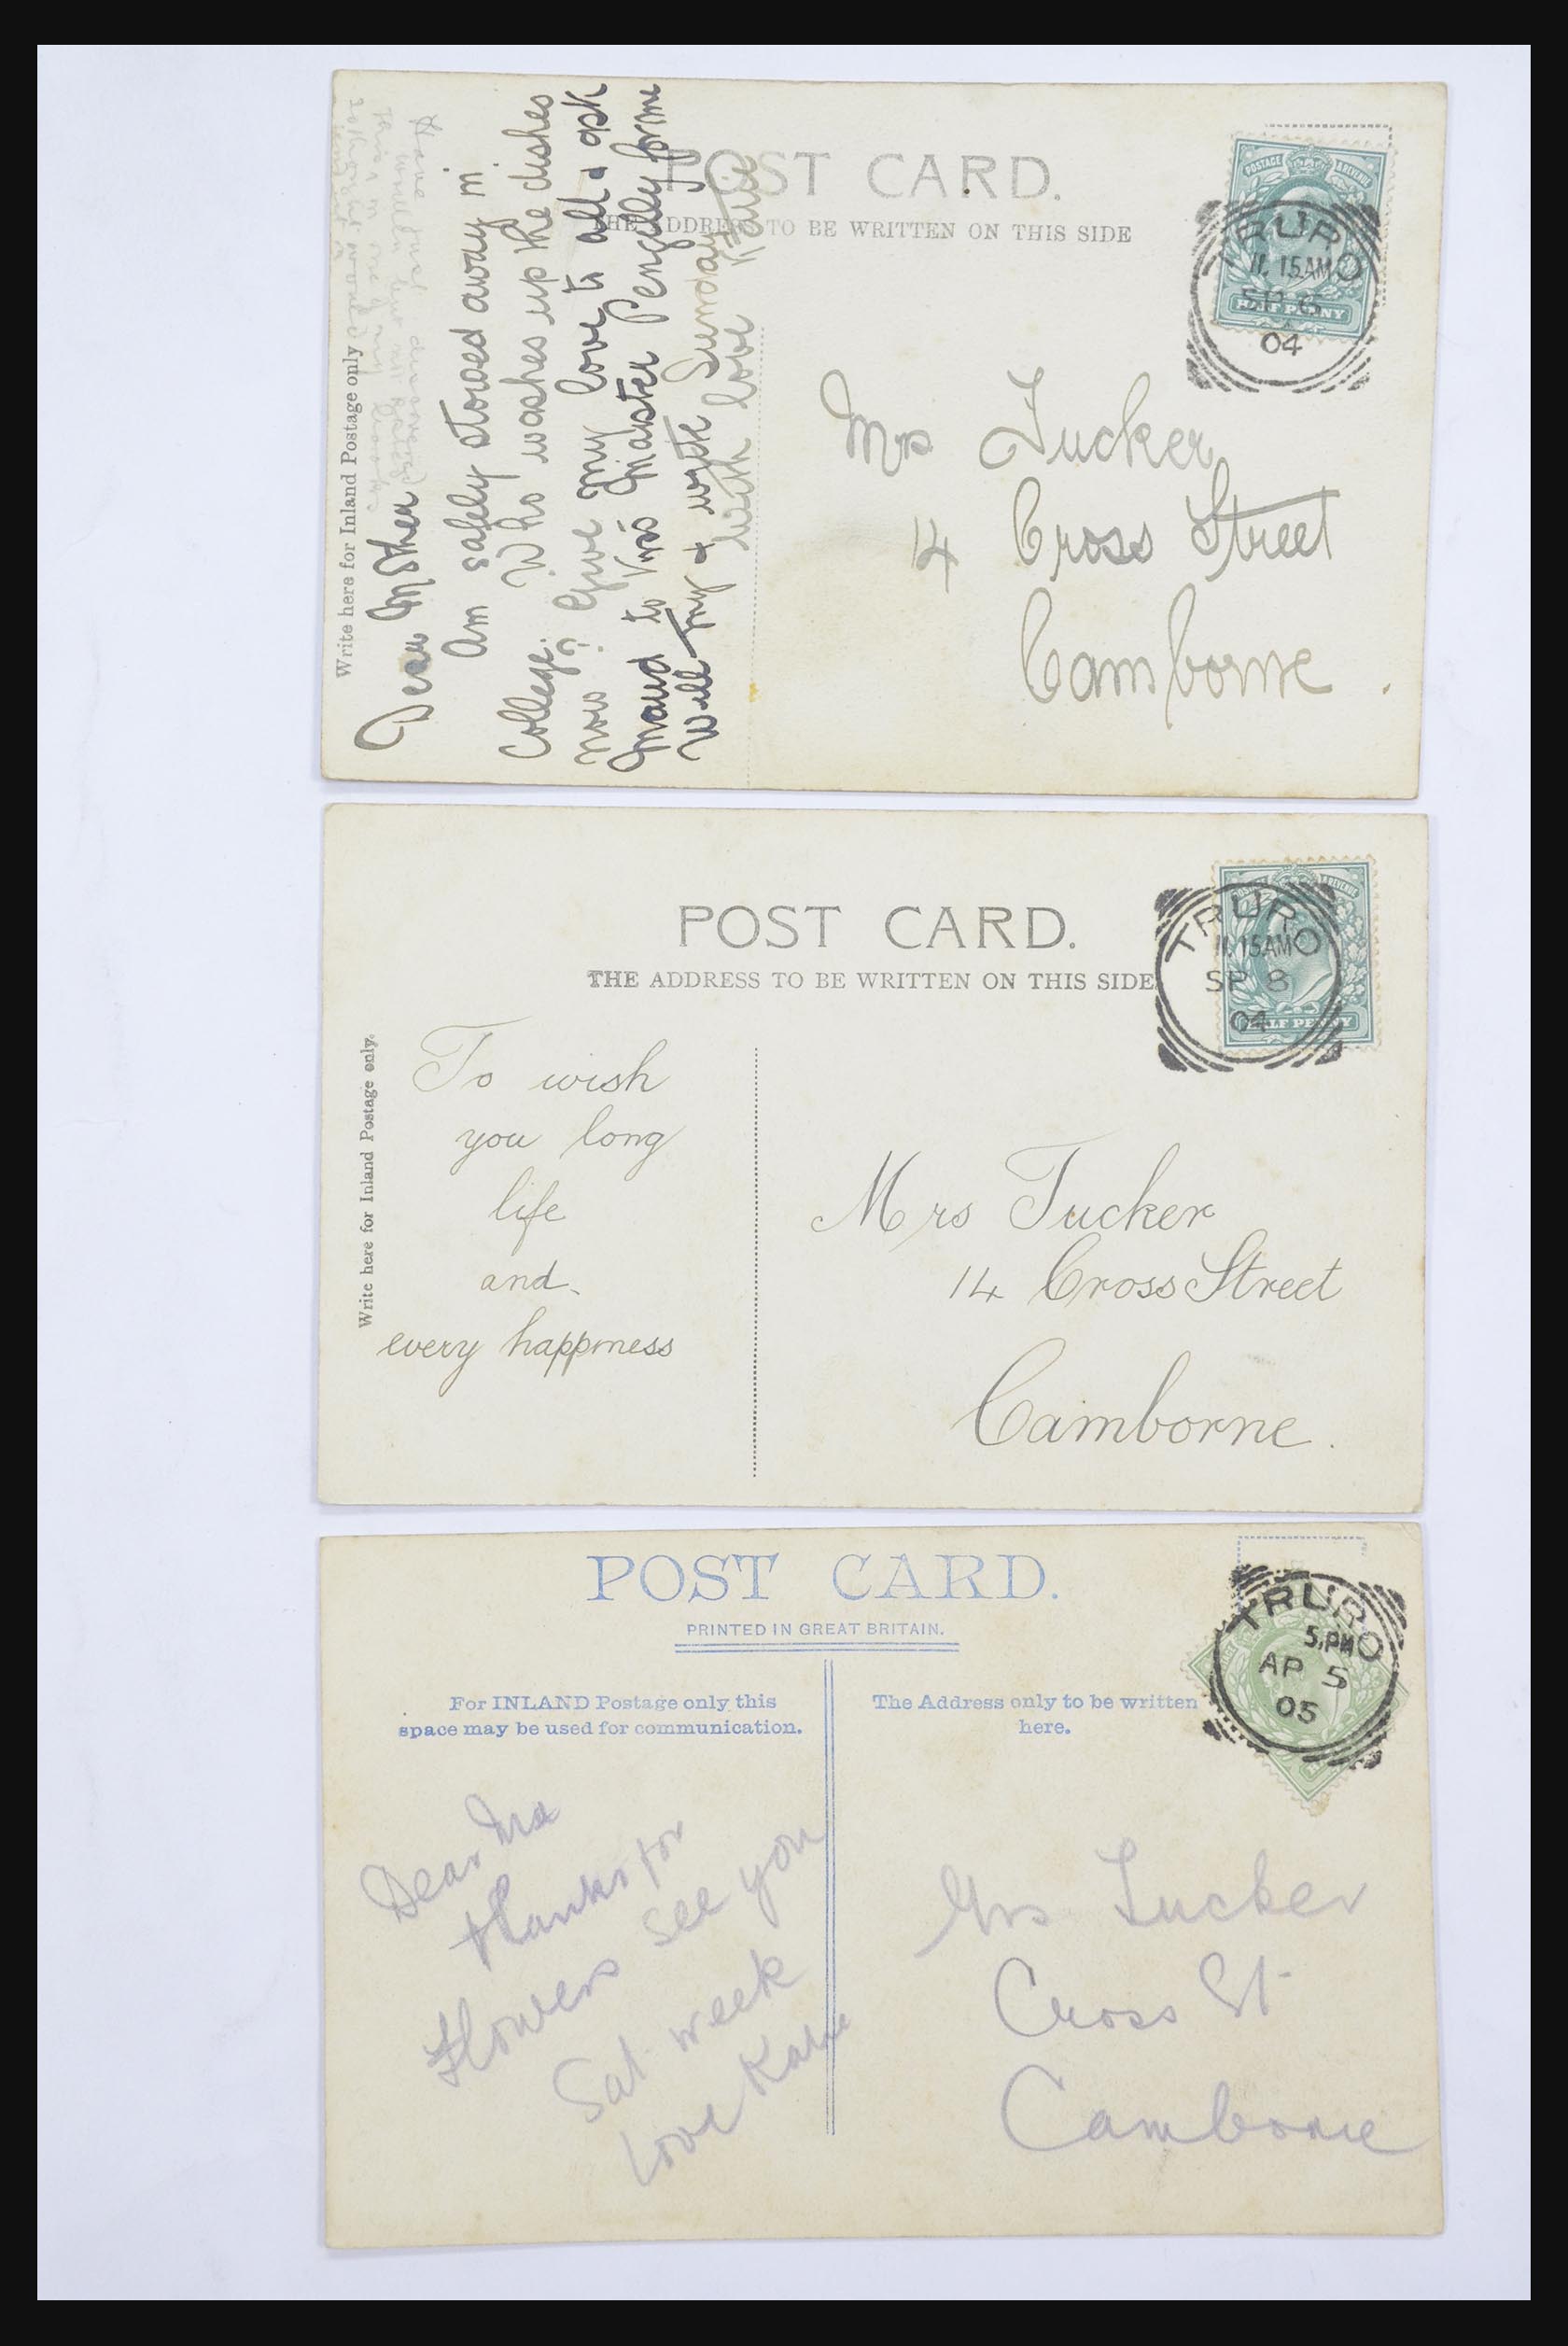 Write here for Inland Postage only
Dear Mother
Am safely stowed away in
College. Who washes up the dishes
now? Give my love to all & ask
Maud to kiss Master Pengelly for me
Will try & write Sunday
with love Katie
POST CARD.
THE ADDRESS TO BE WRITTEN ON THIS SIDE
POSTAGE REVENUE
HALF PENNY
TRURO
11.15AM
04
Mrs Tucker
14 Cross Street
Camborne.
POST CARD.
THE ADDRESS TO BE WRITTEN ON THIS SIDE
TRURO
11.15AM
SP 8
04
HALF PENNY
Write here for Inland Postage only.
To wish
you long
life
and
every happiness
Mrs Tucker
14 Cross Street
Camborne.
POST CARD.
PRINTED IN GREAT BRITAIN.
For INLAND Postage only this
space may be used for communication.
The Address only to be written
here.
TRURO
5.PM
AP 5
05
Dear Ma
thanks for
flowers see you
Sat. week
love Katie
Mrs Tucker
Cross St
Camborne